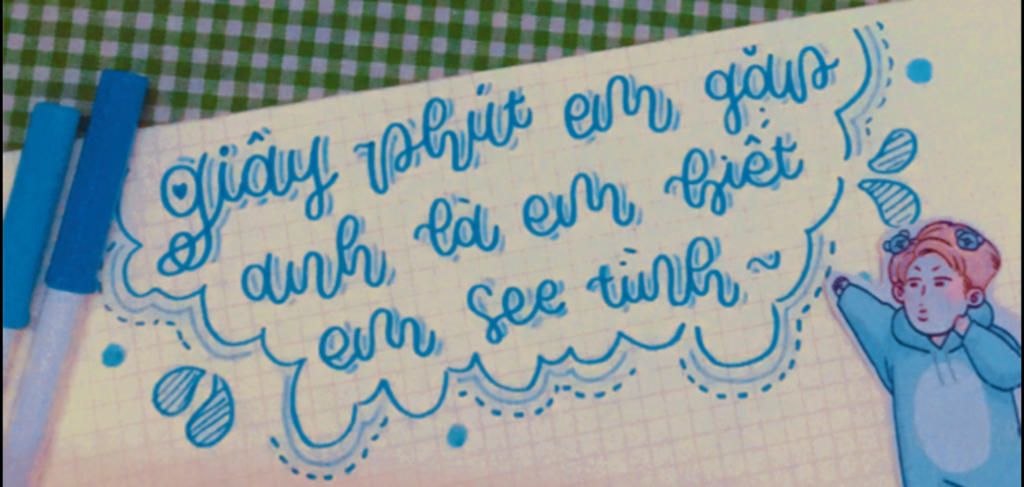 giây phút em gặp
anh là em biết
em see tình ~